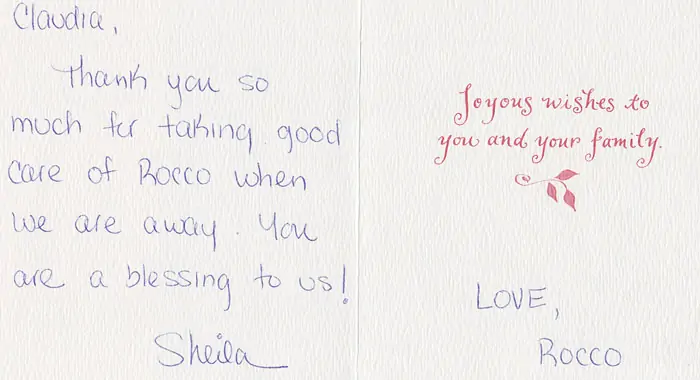 Claudia,
Thank you so
much for taking good
care of Rocco when
we are away. You
are a blessing to us!
Sheila
Joyous wishes to
you and your family.
LOVE,
ROCCO